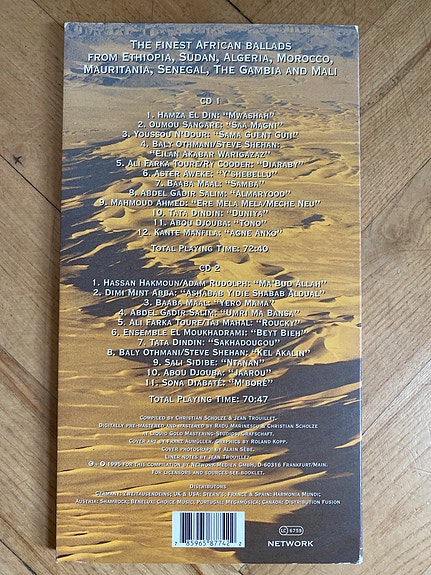 The finest African ballads
from Ethiopia, Sudan, Algeria, Morocco,
Mauritania, Senegal, The Gambia and Mali
CD 1
1. Hamza El Din: "Mwashah"
2. Oumou Sangare: "Saa Magni"
3. Youssou N'Dour: "Sama Guent Guii"
4. Baly Othmani/Steve Shehan:
"Eilan Akabar Warigazaz"
5. Ali Farka Toure/Ry Cooder: "Diaraby"
6. Aster Aweke: "Y'shebellu"
7. Baaba Maal: "Samba"
8. Abdel Gadir Salim: "Almaryood"
9. Mahmoud Ahmed: "Ere Mela Mela/Meche Neu"
10. Tata Dindin: "Duniya"
11. Abou Djouba: "Tono"
12. Kante Manfila: "Agne Anko"
Total Playing Time: 72:40
CD 2
1. Hassan Hakmoun/Adam Rudolph: "Ma'Bud Allah"
2. Dimi Mint Abba: "Ashabab Yidie Shabab Aldual"
3. Baaba Maal: "Yero Mama"
4. Abdel Gadir Salim: "Umri Ma Bansa"
5. Ali Farka Toure/Taj Mahal: "Roucky"
6. Ensemble El Moukhadrami: "Beyt Bieh"
7. Tata Dindin: "Sakhadougou"
8. Baly Othmani/Steve Shehan: "Kel Akalin"
9. Sali Sidibe: "Ntanan"
10. Abou Djouba: "Jaarou"
11. Sona Diabaté: "M'Boré"
Total Playing Time: 70:47
Compiled by Christian Scholze & Jean Trouillet.
Digitally pre-mastered and mastered by Radu Marinescu & Christian Scholze
at Liquid Gold Mastering-Studios, Grafschaft.
Cover art by Franz Aumüller. Graphics by Roland Kopp.
Cover photograph by Alain Sèbe.
Liner notes by Jean Trouillet.
℗ + © 1995 for this compilation by Network Medien GmbH, D-60316 Frankfurt/Main.
For licensors and sources see booklet.
Distributors
Germany: Zweitausendeins; UK & USA: Stern's; France & Spain: Harmonia Mundi;
Austria: Shamrock; Benelux: Choice Music; Portugal: Megamusica; Canada: Distribution Fusion
7 85965 87742 2
LC 6759
NETWORK